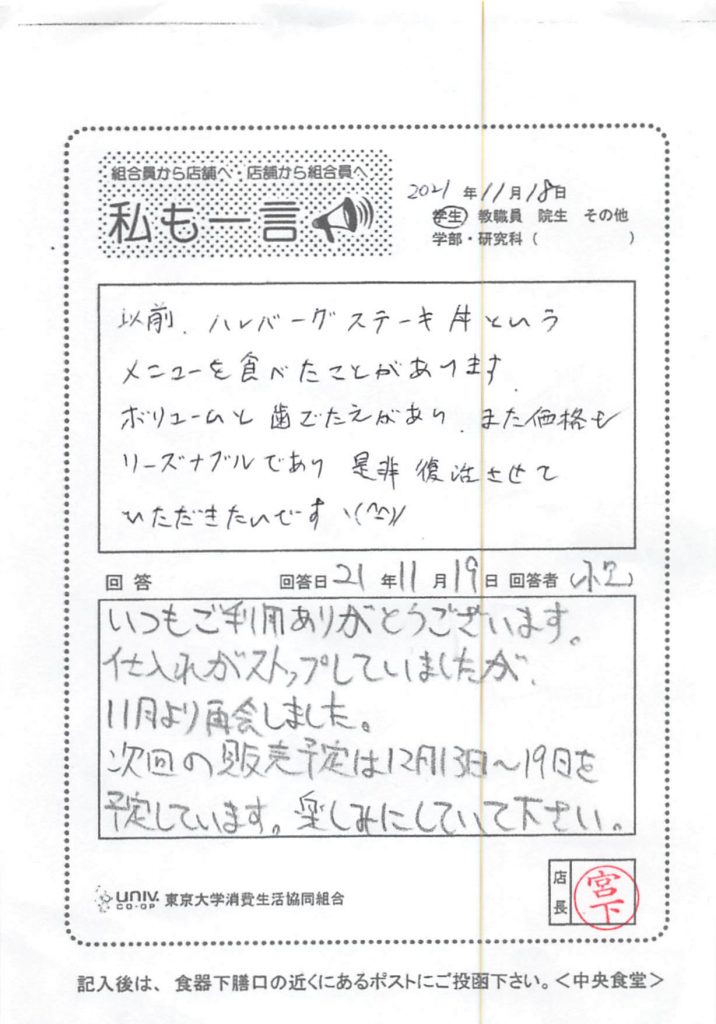 組合員から店舗へ・店舗から組合員へ
私も一言
2021年11月18日
学生 教職員 院生 その他
学部・研究科( )
以前、ハンバーグステーキ丼という
メニューを食べたことがあります。
ボリュームと歯ごたえがあり、また価格も
リーズナブルであり 是非復活させて
いただきたいです ヽ(^^)//
回答 回答日21年11月19日 回答者(小
いつもご利用ありがとうございます。
仕入れがストップしていましたが、
11月より再会しました。
次回の販売予定は12月13日～19日を
予定しています。楽しみにしていて下さい。
UNIV. CO-OP 東京大学消費生活協同組合
店長 宮下
記入後は、食器下膳口の近くにあるポストにご投函下さい。＜中央食堂＞